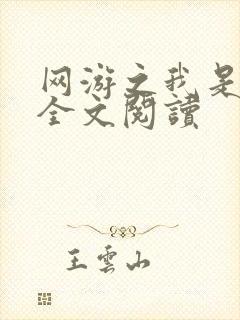 网游之我是
全文閱讀
王雲山